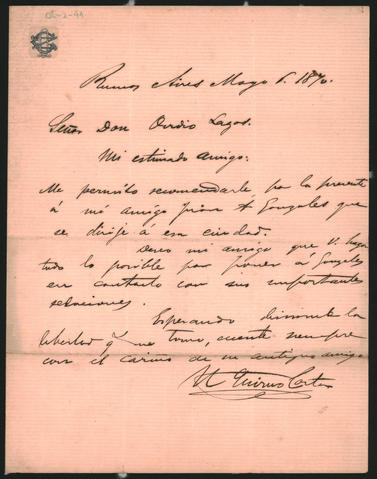 Buenos Aires Mayo 6. 1870.
Señor Don Ovidio Lagos.
Mi estimado amigo:
Me permito recomendarle, por la presente
á mi amigo Juan A Gonzales que
se dirije á esa ciudad.
Deseo mi amigo que V. haga
todo lo posible por poner á Gonzales
en contacto con sus importantes
relaciones.
Esperando disimule la
libertad q' me tomo, cuente siempre
con el cariño de su antiguo amigo